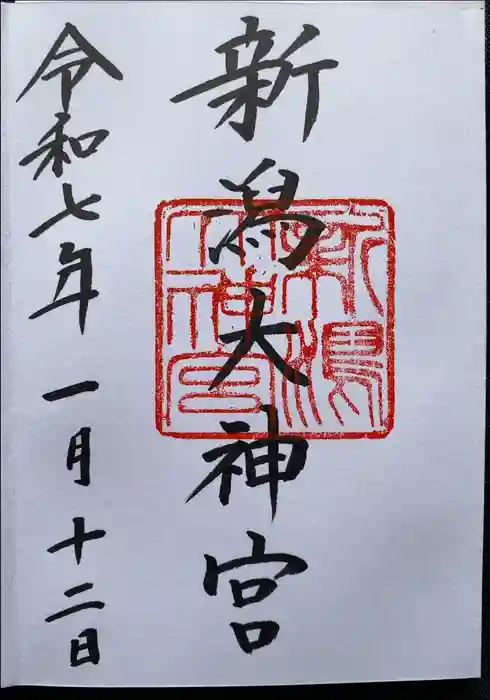 新潟大神宮
令和七年一月十二日
新潟
大神宮